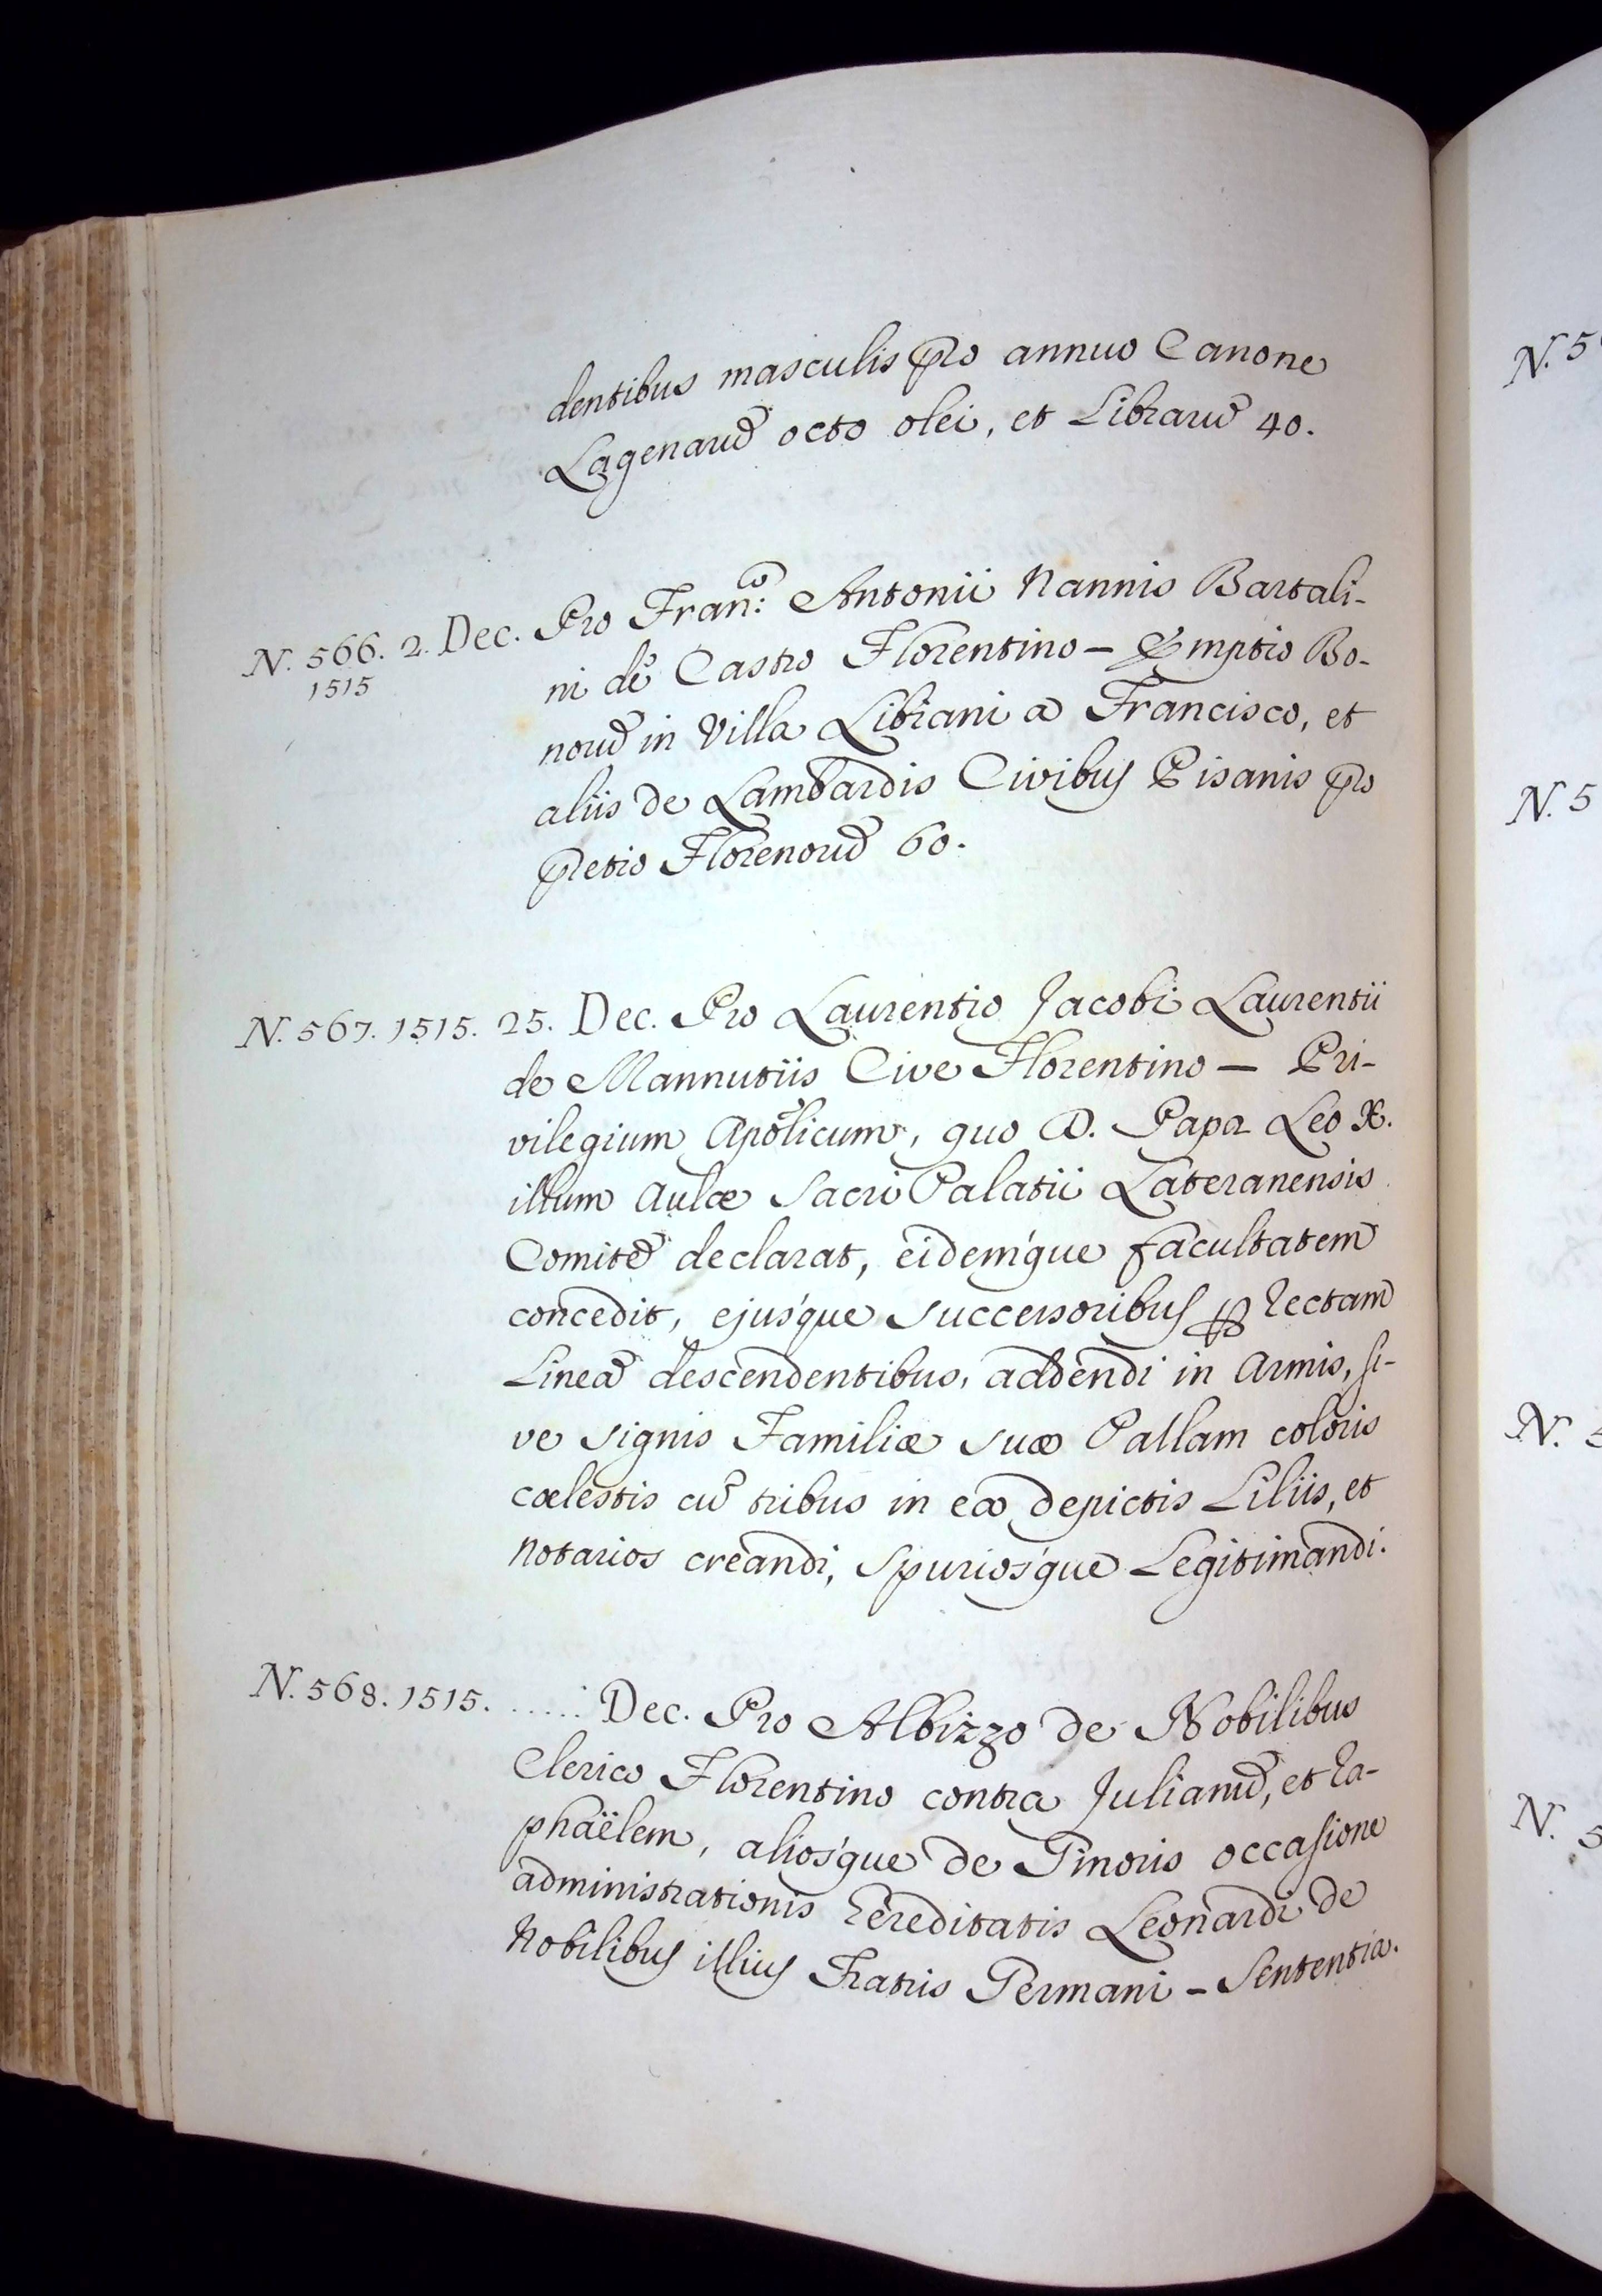 dentibus masculis pro annuo Canone
Lagenarũ octo olei, et Librarũ 40.
N. 566. 2. Dec. Pro Fran:co Antonii Nannis Bartali-
1515
ni de Castro Florentino – Emptio Bo-
norũ in Villa Libiani a Francisco, et
aliis de Lambardis Civibus Pisanis pro
pretio Florenorũ 60.
N. 567. 1515. 25. Dec. Pro Laurentio Jacobi Laurentii
de Mannutiis Cive Florentino — Pri-
vilegium Apõlicum, quo D. Papa Leo X.
illum Aulæ Sacri Palatii Lateranensis
Comitẽ declarat, eidemque facultatem
concedit, ejusque successoribus ꝑ rectam
Lineã descendentibus, addendi in Armis, si-
ve signis Familiæ suæ Pallam coloris
cælestis cũ tribus in ea depictis Liliis, et
Notarios creandi, Spuriosque Legitimandi.
N. 568. 1515. ..... Dec. Pro Albizzo de Nobilibus
Clerico Florentino contra Julianũ, et Ra-
phaëlem, aliosque de Ginoris occasione
administrationis hereditatis Leonardi de
Nobilibus illius Fratris Germani – Sententia.
N. 5
N. 5
N. 5
N. 5